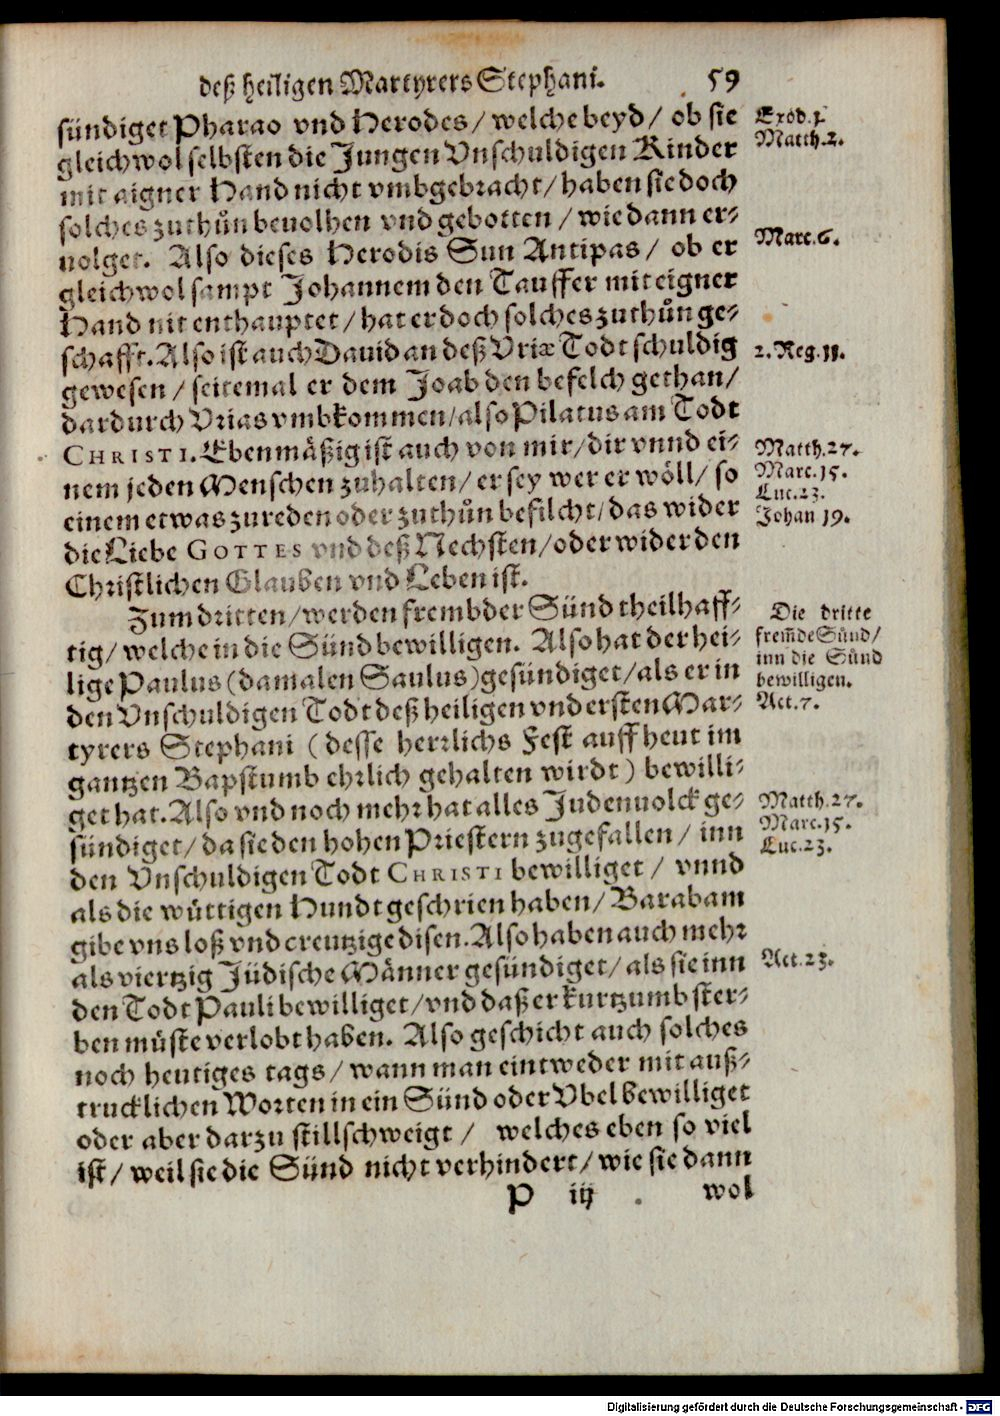 deß heiligen Martyrers Stephani. 59
sündiget Pharao vnd Herodes/ welche beyd/ ob sie
gleichwol selbsten die Jungen Vnschuldigen Kinder
mit aigner Hand nicht vmbgebracht/ haben sie doch
solches zuthůn beuolhen vnd gebotten/ wie dann er-
uolget. Also dieses Herodis Sun Antipas/ ob er
gleichwol sampt Johannem den Tauffer mit eigner
Hand nit enthauptet/ hat er doch solches zuthůn ge-
schafft. Also ist auch Dauid an deß Vriæ Todt schuldig
gewesen/ seitemal er dem Joab den befelch gethan/
dardurch Vrias vmbkommen/ also Pilatus am Todt
CHRISTI. Ebenmäßig ist auch von mir/ dir vnnd ei-
nem jeden Menschen zuhalten/ er sey wer er wöll/ so
einem etwas zureden oder zuthůn befilcht/ das wider
die Liebe GOTTES vnd deß Nechsten/ oder wider den
Christlichen Glauben vnd Leben ist.
Zum dritten/ werden frembder Sünd theilhaff-
tig/ welche in die Sünd bewilligen. Also hat der hei-
lige Paulus (damalen Saulus) gesündiget/ als er in
den Vnschuldigen Todt deß heiligen vnd ersten Mar-
tyrers Stephani (desse herrlichs Fest auff heut im
gantzen Bapstumb ehrlich gehalten wirdt) bewilli-
get hat. Also vnd noch mehr hat alles Judenuolck ge-
sündiget/ da sie den hohen Priestern zugefallen/ inn
den Vnschuldigen Todt CHRISTI bewilliget/ vnnd
als die wüttigen Hundt geschrien haben/ Barabam
gibe vns loß vnd creutzige disen. Also haben auch mehr
als viertzig Jüdische Männer gesündiget/ als sie inn
den Todt Pauli bewilliget/ vnd daß er kurtzumb ster-
ben müste verlobt haben. Also geschicht auch solches
noch heutiges tags/ wann man eintweder mit auß-
trucklichen Worten in ein Sünd oder Vbel bewilliget
oder aber darzu stillschweigt/ welches eben so viel
ist/ weil sie die Sünd nicht verhindert/ wie sie dann
P iij wol
Exod. 1.
Matth. 2.
Marc. 6.
2. Reg. 11.
Matth. 27.
Marc. 15.
Luc. 23.
Johan 19.
Die dritte
frem̃de Sünd/
inn die Sünd
bewilligen.
Act. 7.
Matth. 27.
Marc. 15.
Luc. 23.
Act. 23.
Digitalisierung gefördert durch die Deutsche Forschungsgemeinschaft - DFG